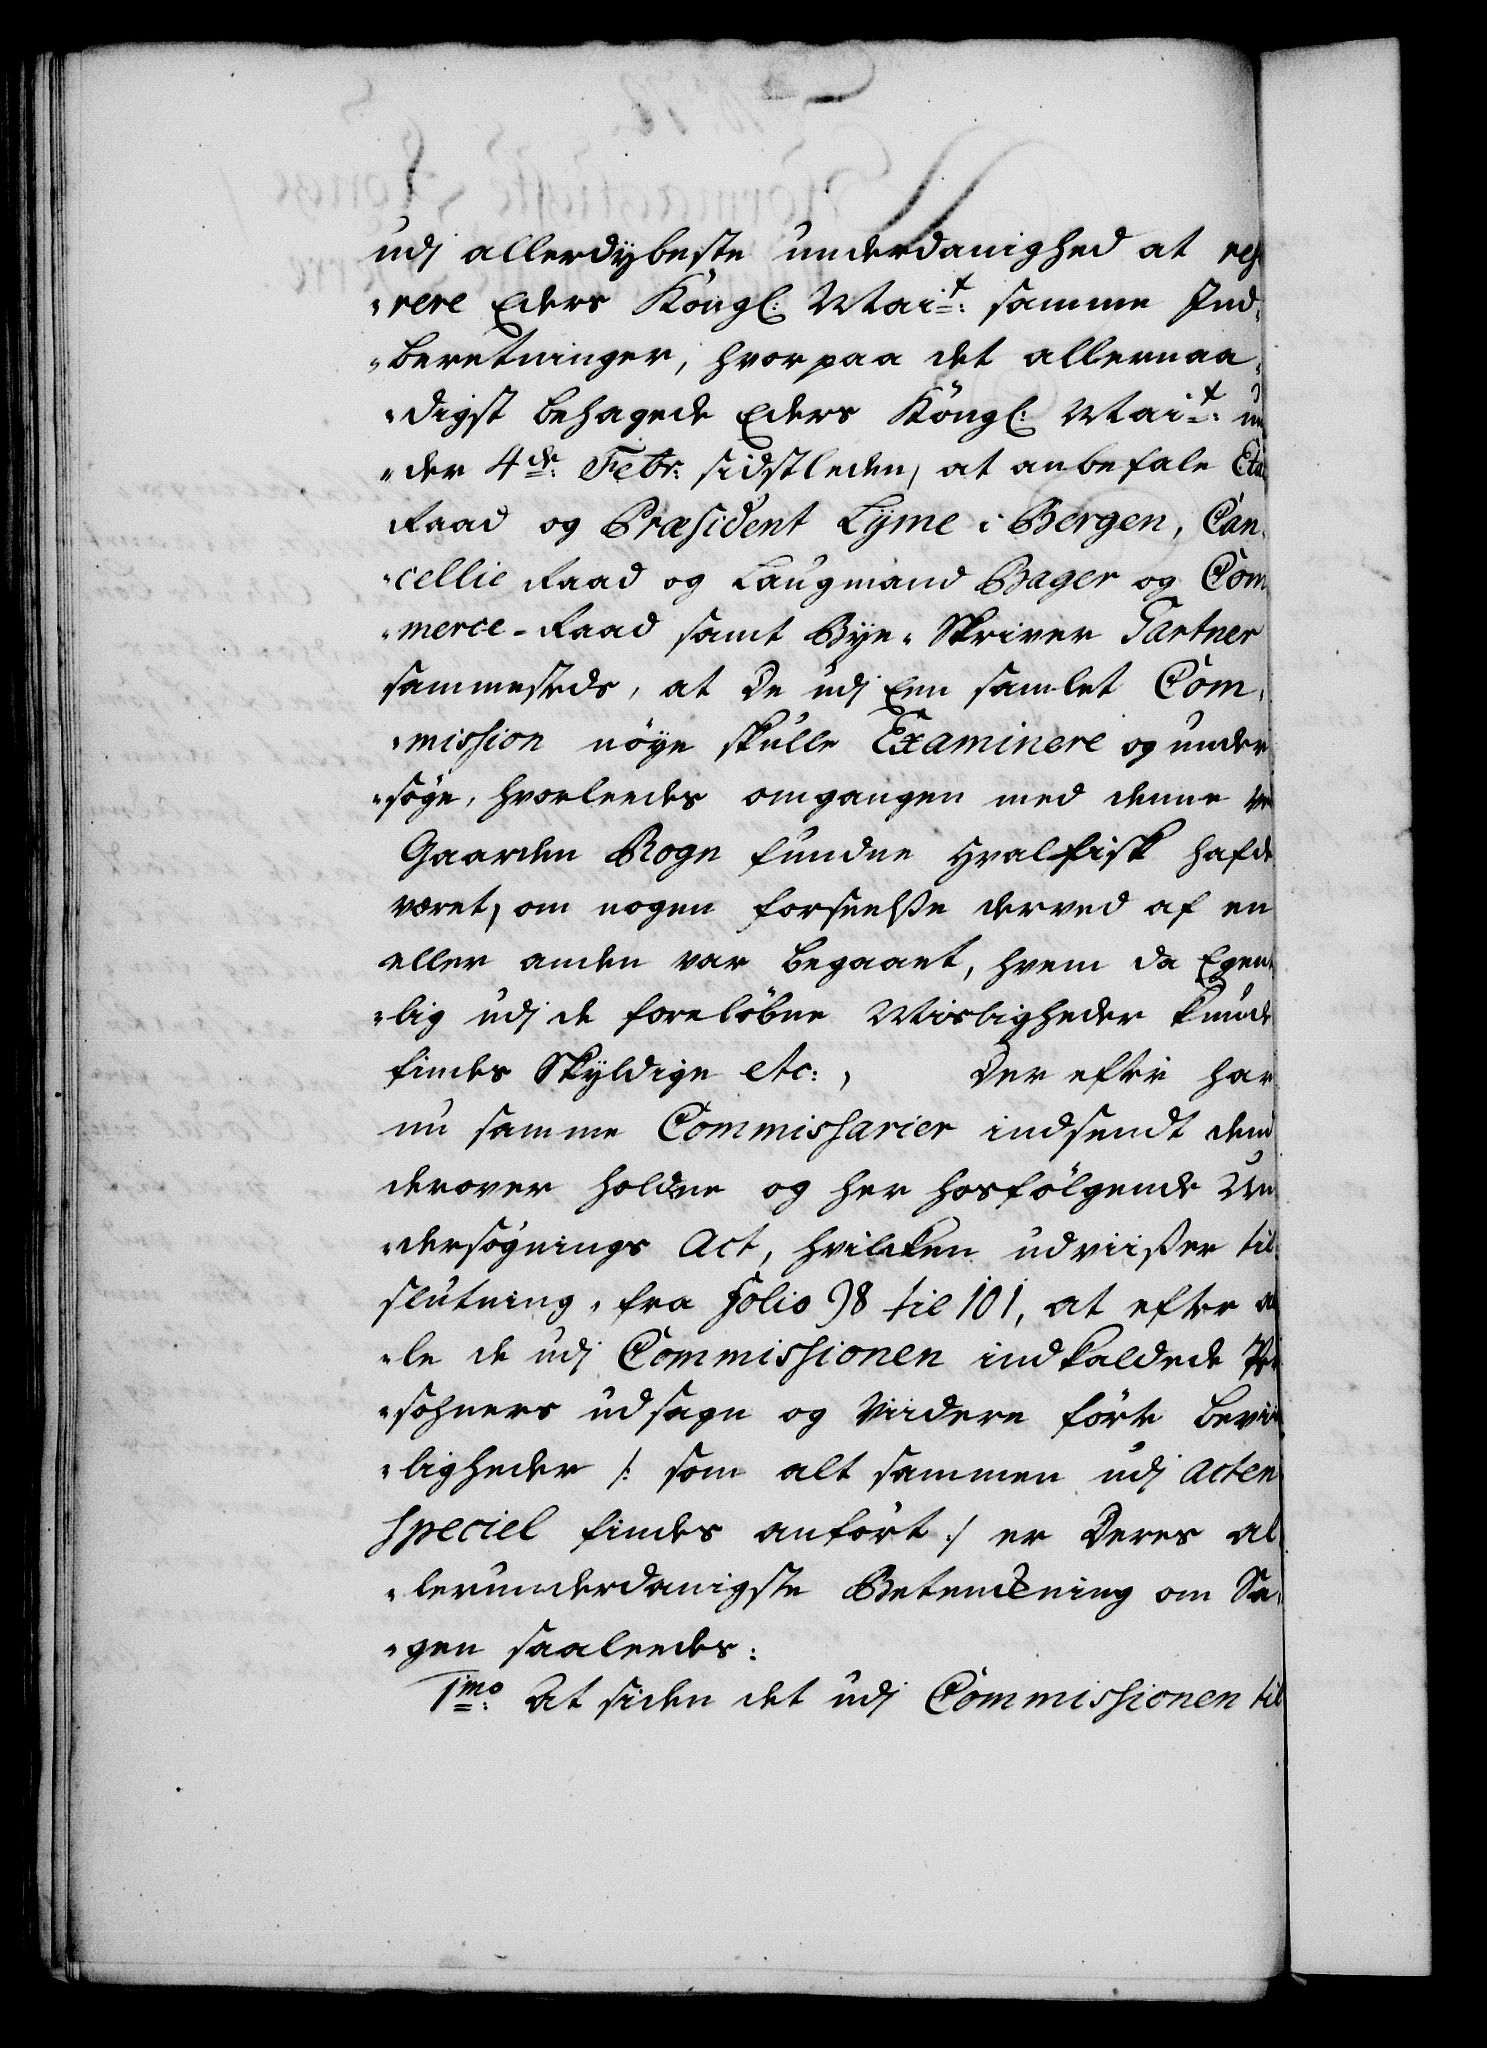 udj allerdybeste underdanighed at ref
"rere Eders Kongl: Mai.t: samme Ind„
„beretninger, hvorpaa det allernaa„
„digst behagede Eders Köngl: Mai.t: un
„der 4de: Febr: sidstleden, at anbefale Eta
Raad og Præsident Lÿme i Bergen, Can„
„cellie Raad og Laugmand Bager og Com
„merce-Raad samt Bye„Skriver Gartner
sammesteds, at De udj Een samlet Com„
„mission nöye skulle Examinere og under
„söge, hvorleedes omgangen med denne ve
Gaarden Rogn fundne Hvalfisk hafde
været, om nogen forseelße derved af en
eller anden var begaaet, hvem da Egent
„lig udj de forelöbne Misligheder kunde
findes Skÿldige etc:, Der efter har
nu samme Commissarier indsendt dend
derover holdne og her hosfölgende Un
„dersögnings Act, hvilcken udviißer til
slutning„ fra Folio 98 til 101, at efter al
„le de udj Commissionen indkaldede Per
„sohners udsagn og Viidere förte beviis
„ligheder /: som alt sammen udj acten
speciel findes anfört :/ er Deres al
„lerunderdanigste Betenckning om Sa„
„gen saaleedes:
1mo: At siden det udj Commissionen til